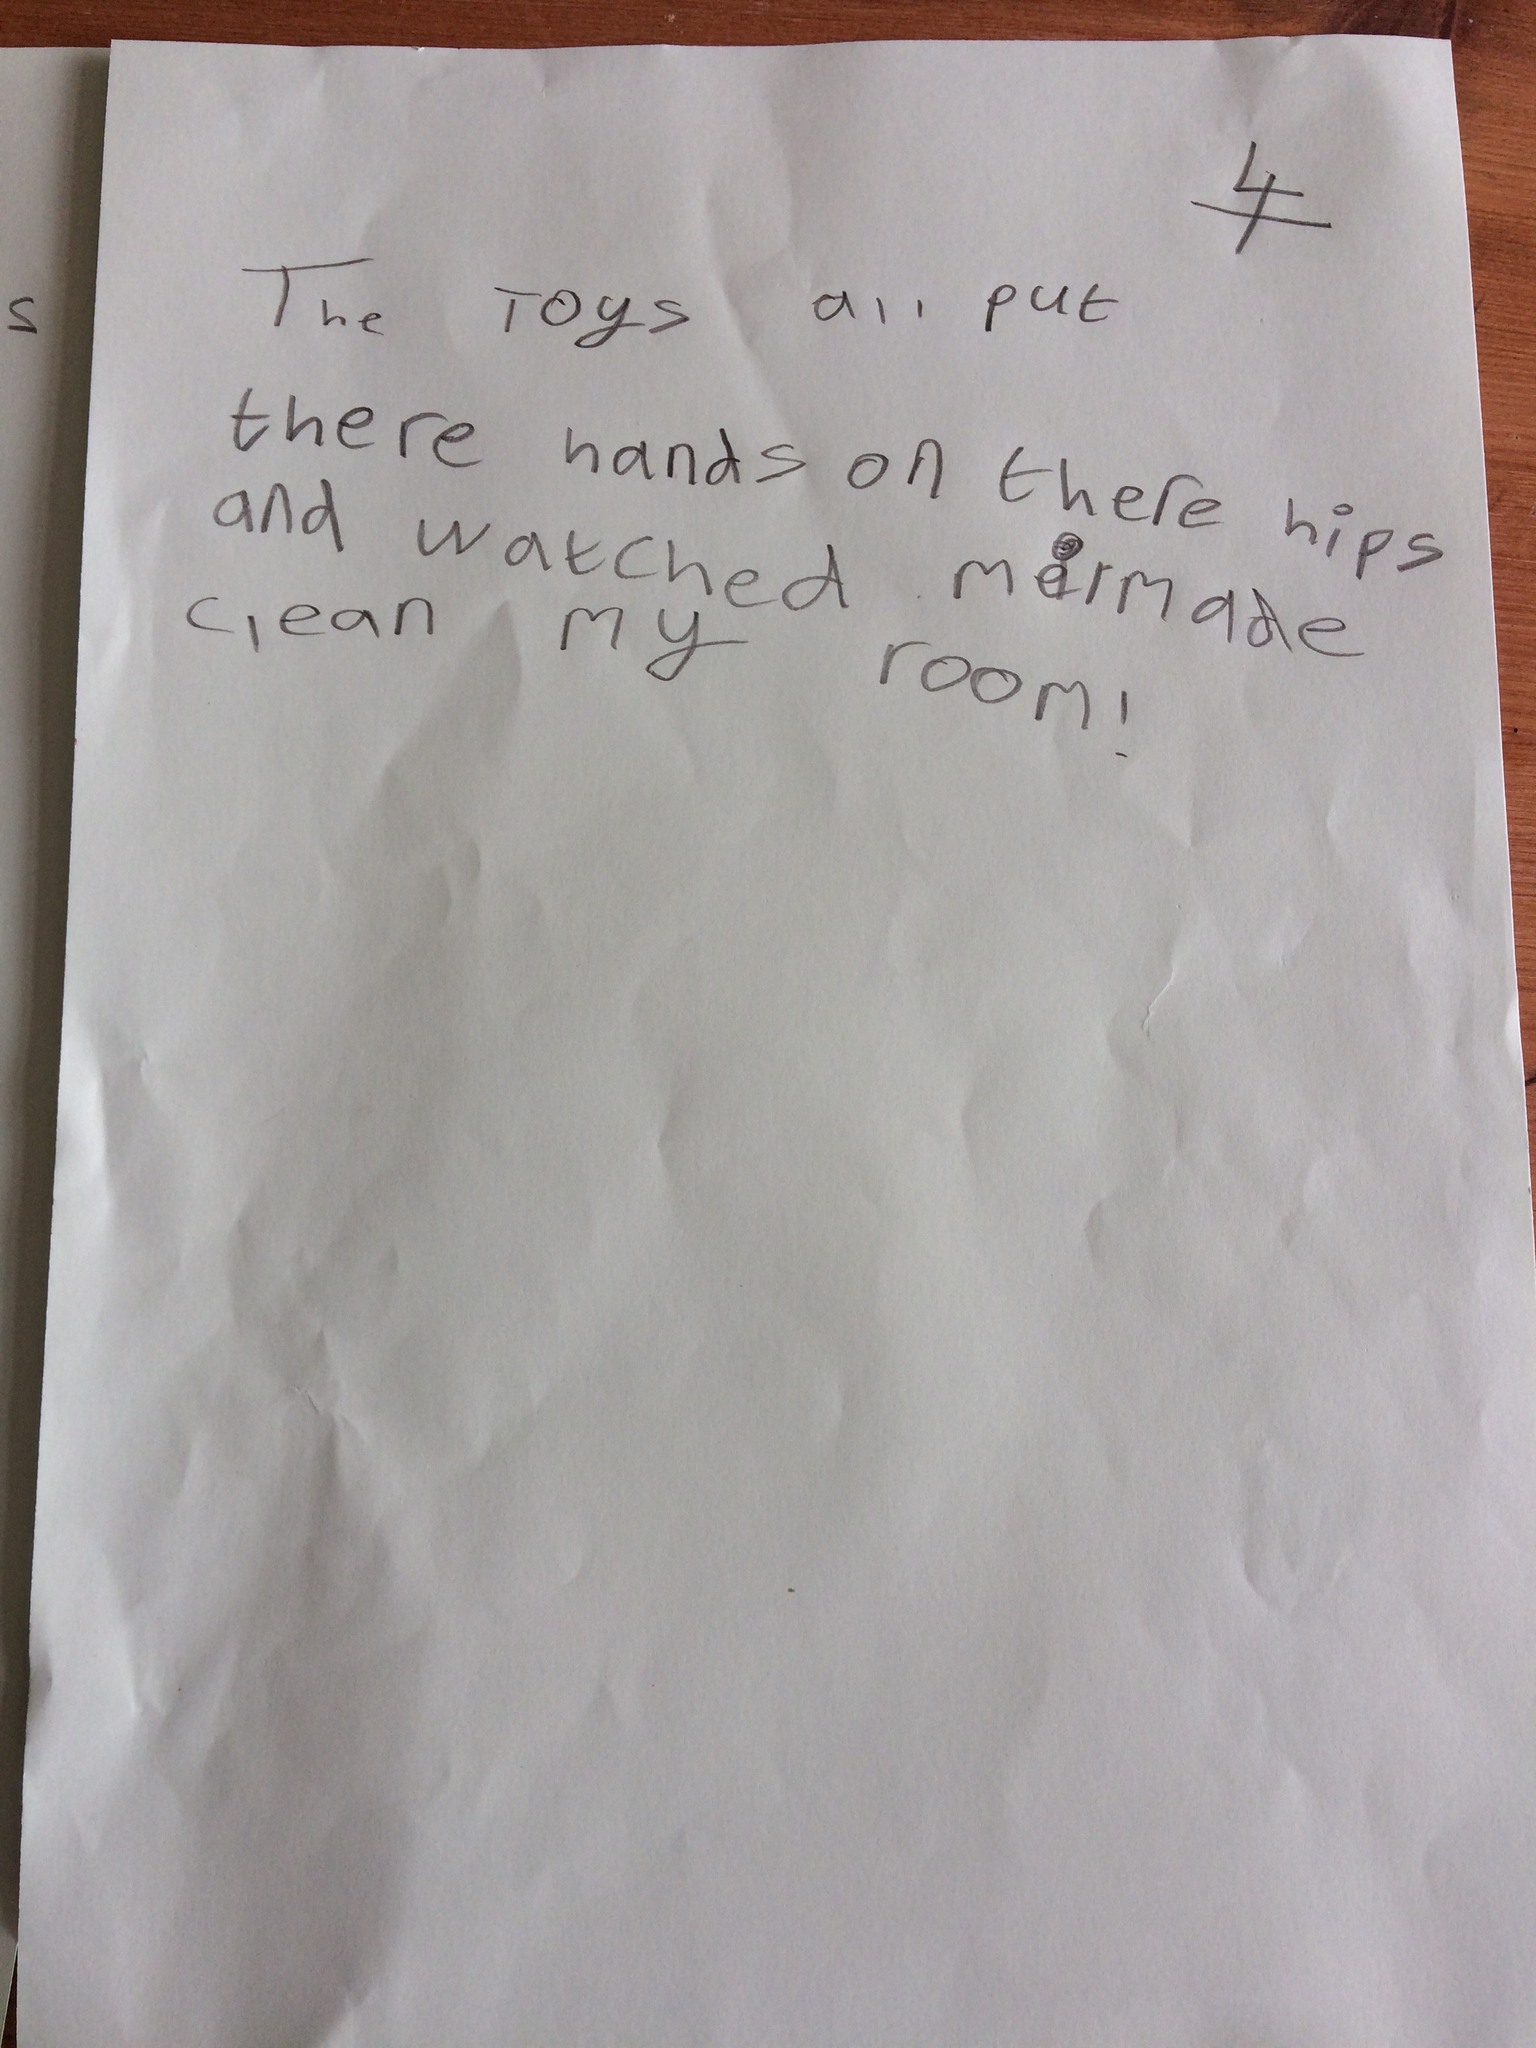 4
The Toys all put
s
there hands on there hips
and watched mermade
clean my room!